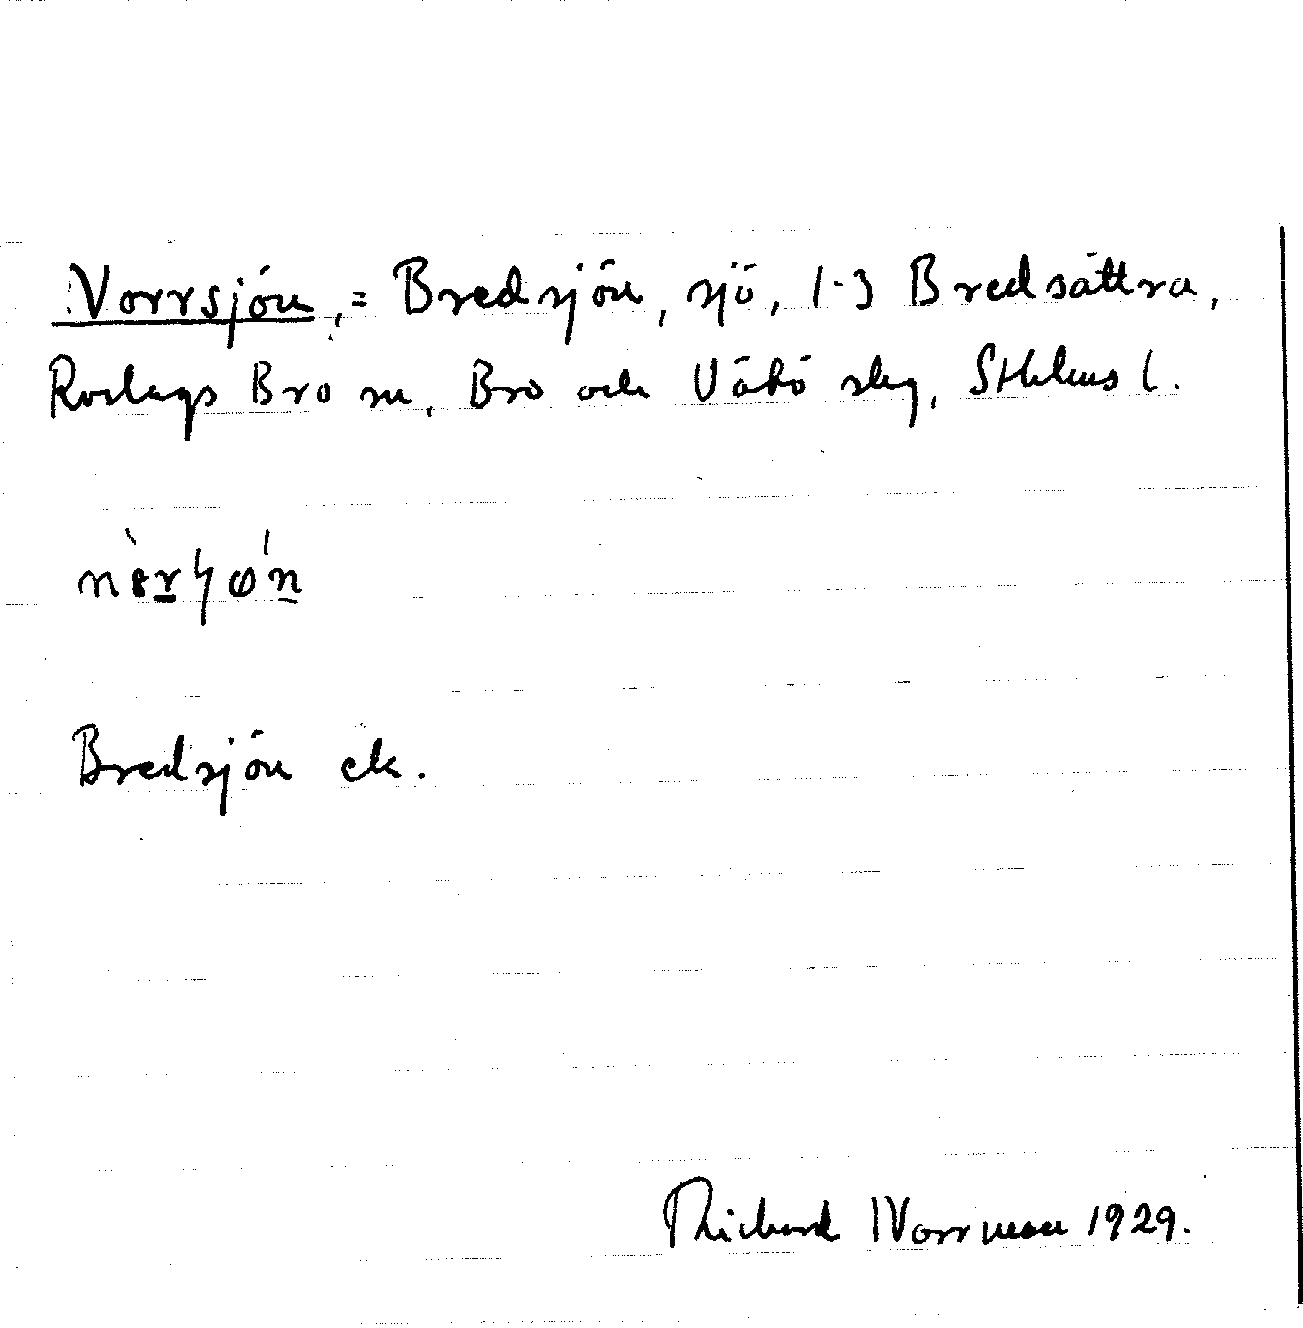 Norrsjön, = Bredsjön, sjö, 1-3 Bredsättra,
Roslags Bro sn, Bro och Vätö skg, Sthlms l.
Bredsjön ek.
Richard Norrman 1929.